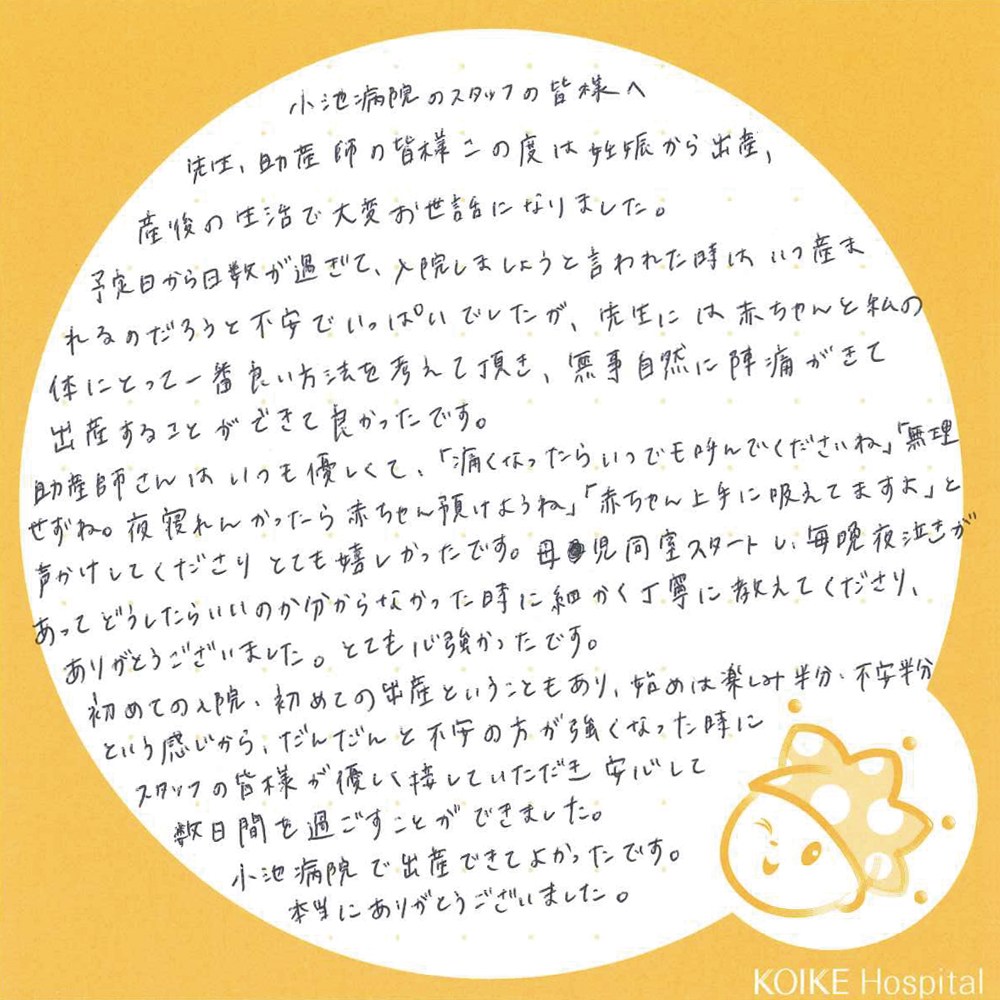 小池病院のスタッフの皆様へ
先生、助産師の皆様この度は妊娠から出産,
産後の生活で大変お世話になりました。
予定日から日数が過ぎて、入院しましょうと言われた時はいつ産ま
れるのだろうと不安でいっぱいでしたが、先生には赤ちゃんと私の
体にとって一番良い方法を考えて頂き、無事自然に陣痛がきて
出産することができて良かったです。
助産師さんはいつも優しくて、「痛くなったらいつでも呼んでくださいね」「無理
せずね。夜寝れんかったら赤ちゃん預けようね」「赤ちゃん上手に吸えてますよ」と
声かけしてくださりとても嬉しかったです。母児同室スタートし、毎晩夜泣きが
あってどうしたらいいのか分からなかった時に細かく丁寧に教えてくださり、
ありがとうございました。とても心強かったです。
初めての入院、初めての出産ということもあり、始めは楽しみ半分・不安半分
という感じから、だんだんと不安の方が強くなった時に
スタッフの皆様が優しく接していただき安心して
数日間を過ごすことができました。
小池病院で出産できてよかったです。
本当にありがとうございました。
KOIKE Hospital